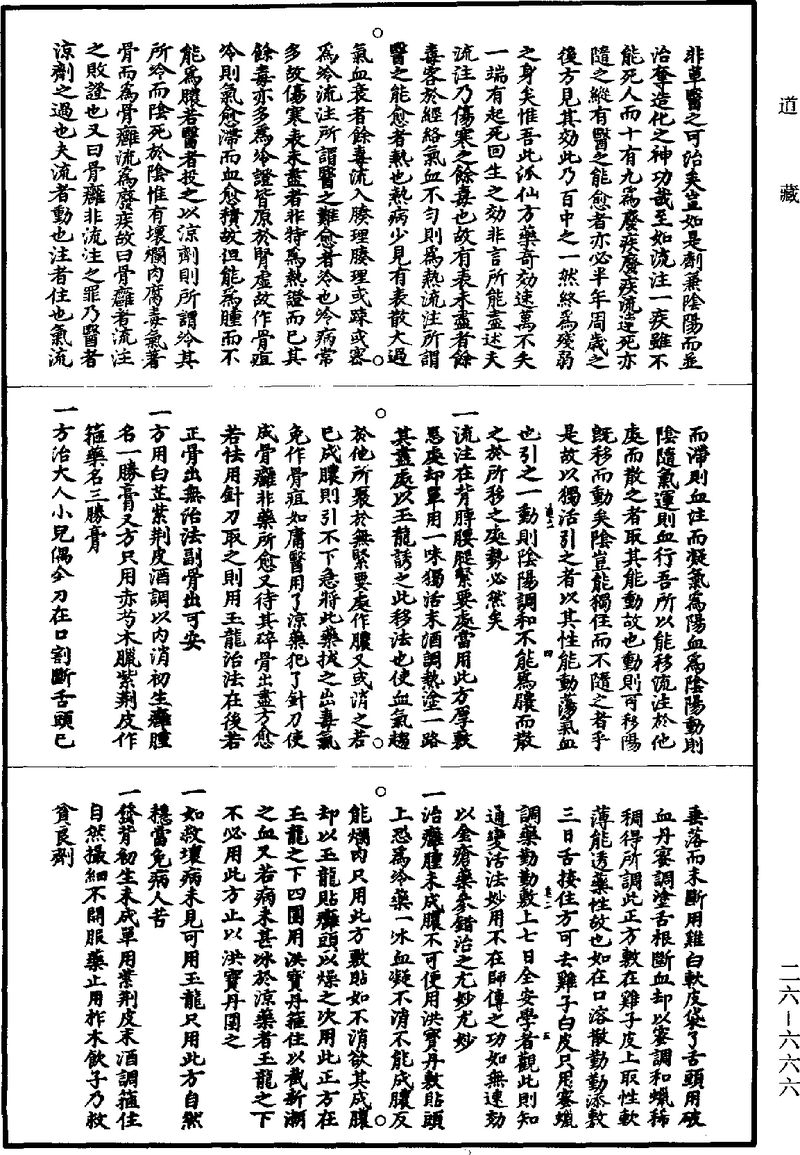 道藏
非草醫之可治矣豈如是劑兼陰陽而並
治奪造化之神功哉至如流注一疾雖不
能死人而十有九為廢疾廢疾流連死亦
隨之縱有醫之能愈者亦必半年周歲之
後方見其効此乃百中之一然終為殘弱
之身矣惟吾此派仙方藥奇効速萬不失
一端有起死回生之効非言所能盡述夫
流注乃傷寒之餘毒也故有表未盡者餘
毒客於經絡氣血不勻則為熱流注所謂
醫之能愈者熱也熱病少見有表散大過
氣血衰者餘毒流入腠理腠理或踈或密
為冷流注所謂醫之難愈者冷也冷病常
多故傷寒表未盡者非特為熱證而已其
餘毒亦多為冷證皆原於腎虛故作骨疽
冷則氣愈滯而血愈積故但能為腫而不
能為膿若醫者投之以涼劑則所謂冷其
所冷而陰死於陰惟有壞爛肉腐毒氣著
骨而為骨癰流為廢疾故曰骨癰者流注
之敗證也又曰骨癰非流注之罪乃醫者
涼劑之過也夫流者動也注者住也氣流
而滯則血注而凝氣為陽血為陰陽動則
陰隨氣運則血行吾所以能移流注於他
處而散之者取其能動故也動則可移陽
旣移而動矣陰豈能獨住而不隨之者乎
是故以獨活引之者以其性能動蕩氣血
也引之一動則陰陽調和不能為膿而散
之於所移之處勢必然矣
一流注在背脾腰腿緊要處當用此方厚敷
患處却單用一味獨活末酒調熱塗一路
其盡處以玉龍誘之此移法也使血氣趨
於他所聚於無緊要處作膿又或消之若
已成膿則引不下急將此藥拔之出毒氣
免作骨疽如庸醫用了涼藥犯了針刀使
成骨癰非藥所愈又待其碎骨出盡方愈
若怯用針刀取之則用玉龍治法在後若
正骨出無治法副骨出可安
一方用白芷紫荆皮酒調以內消初生癰腫
名一勝膏又方只用赤芍木臘紫荆皮作
箍藥名三勝膏
一方治大人小兒偶含刀在口割斷舌頭已
垂落而未斷用雞白軟皮袋了舌頭用破
血丹蜜調塗舌根斷血却以蜜調和蠟稀
稠得所調此正方敷在雞子皮上取性軟
薄能透藥性故也如在口溶散勤勤添敷
三日舌接住方可去雞子白皮只用蜜蠟
調藥勤勤敷上七日全安學者觀此則知
通變活法妙用不在師傳之功如無速効
以金瘡藥參錯治之尤妙尤妙
一治癰腫未成膿不可便用洪寶丹敷貼頭
上恐為冷藥一冰血凝不消不能成膿反
能爛肉只用此方敷貼如不消欲其成膿
却以玉龍貼癰頭以燥之次用此正方在
玉龍之下四圍用洪寶丹箍住以截新潮
之血又若病未甚冰於涼藥者玉龍之下
不必用此方止以洪寶丹圍之
一如救壞病未見可用玉龍只用此方自然
穩當免病人苦
一發背初生未成單用紫荆皮末酒調箍住
自然撮細不開服藥止用柞木飲子乃救
貧良劑
二六—六六六